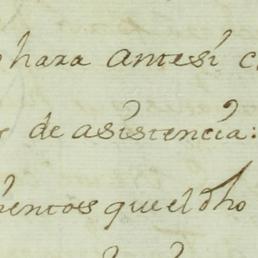 hara antesi
de asistencia:
mentos que el dho